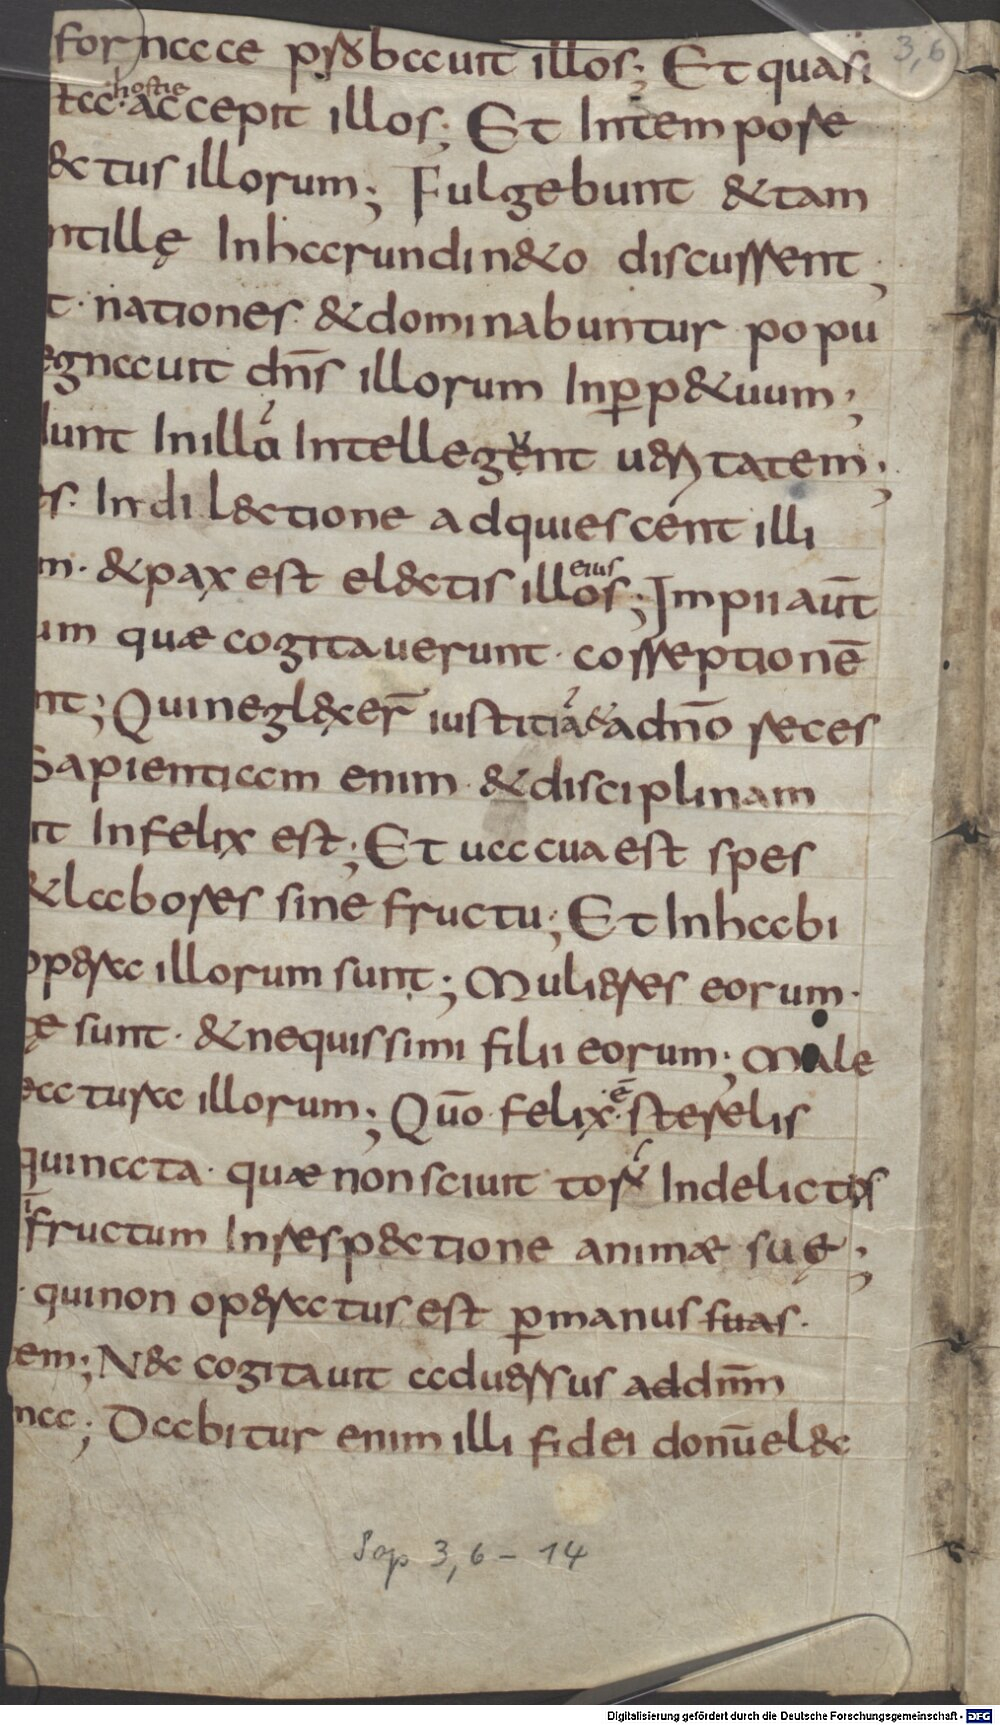 3,6
fornace probauit illos; Et quasi
hostie
ta· accepit illos; Et Intempore
ectus illorum; Fulgebunt &tam
ntillę Inharundin&o discurrent;
t· nationes· &dominabuntur popu
egnauit dn̄s illorum Inp̲p&uum;
dunt Inilla Intellegent ueritatem;
es· Indilectione adquiescent illi
eius
m· &pax est electis illos; Impii aūt
um quae cogitauerunt· correptionē
nt; Quineglexer̄ iustitia & adn̄o reces
Sapientiam enim &disciplinam
it Infelix est; Et uacua est spes
&labores sine fructu; Et Inhabi
opera illorum sunt; Mulieres eorum·
tę sunt· &nequissimi filii eorum; Male
eatura illorum; Quō felix·ē sterelis
quinata· quae nonsciuit tor Indelictos
fructum Inrespectione animae suę;
· quinon operatus est p̲manus suas·
em; Nec cogitauit aduersus addn̄m
na; Dabitur enim illi fidei donūelec
Sap 3,6 – 14
Digitalisierung gefördert durch die Deutsche Forschungsgemeinschaft - DFG